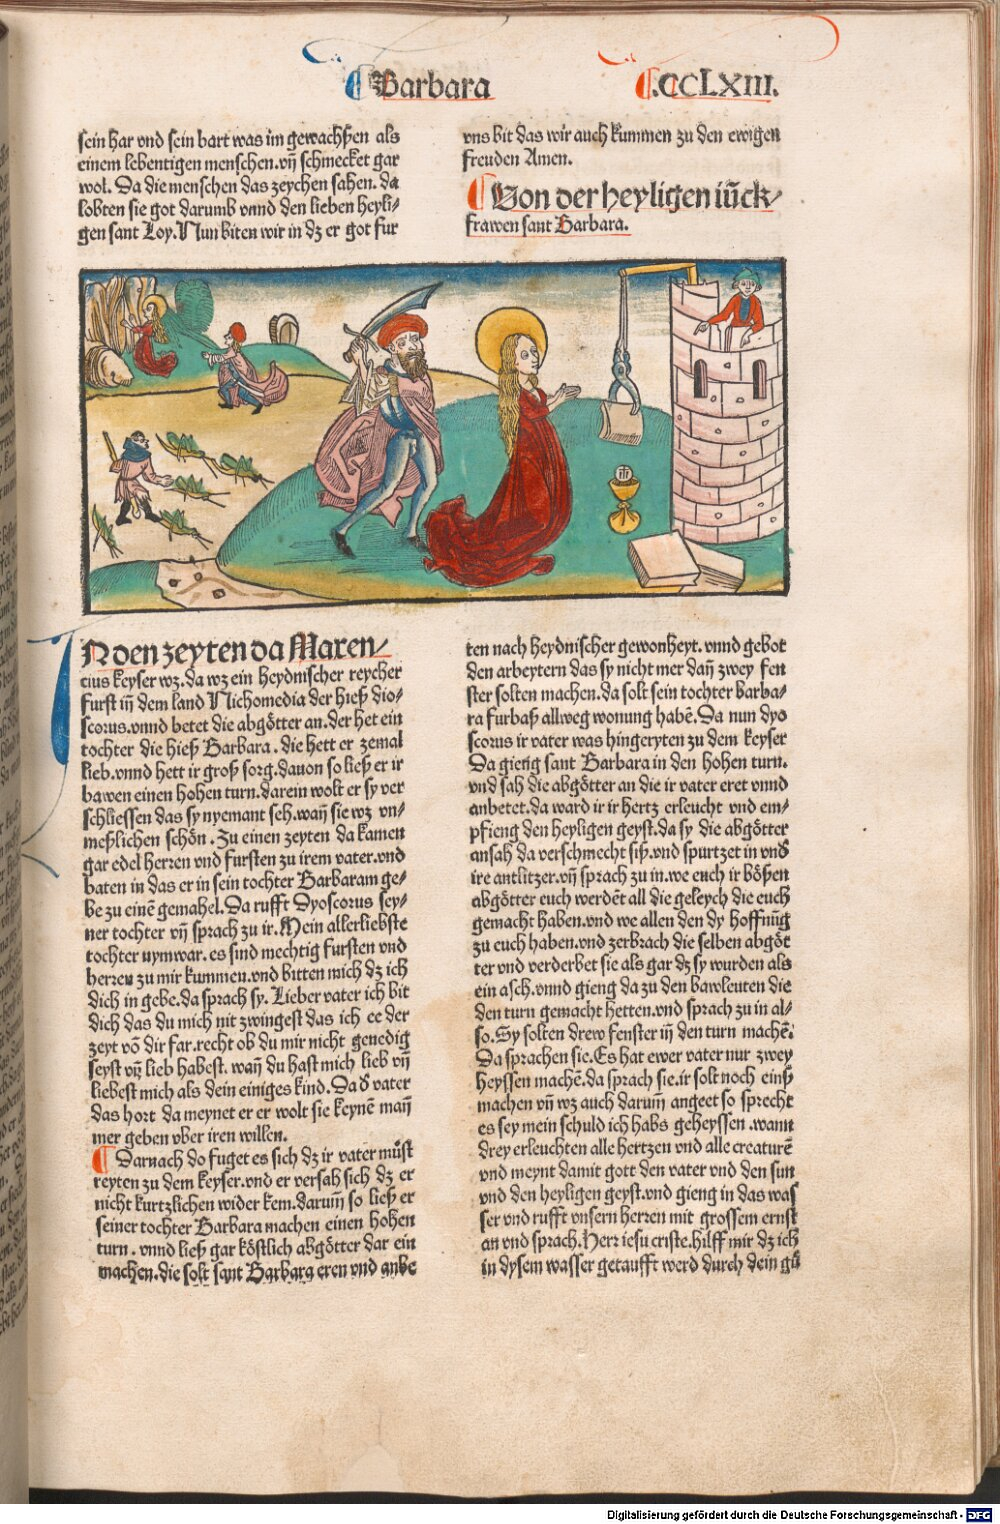 Barbara
.CCLXIII.
sein har vnd sein bart was im gewachßen als
einem lebentigen menschen.vñ schmecket gar
wol. Da die menschen das zeychen sahen. da
lobten sie got darumb vnnd den lieben heyli-
gen sant Loy. Nun biten wir in dz er got fur
vns bit das wir auch kummen zu den ewigen
freuden Amen.
Von der heyligen iūck-
frawen sant Barbara.
N den zeyten da Maxen-
cius keyser wz. da wz ein heydnischer reycher
furst iñ dem land Nichomedia der hieß dio-
scorus.vnnd betet die abgötter an.der het ein
tochter die hieß Barbara. die hett er zemal
lieb.vnnd hett ir groß sorg.dauon so ließ er ir
bawen einen hohen turn.darein wolt er sy ver
schliessen das sy nyemant seh.wañ sie wz vn-
meßlichen schön. Zu einen zeyten da kamen
gar edel herren vnd fursten zu irem vater.vnd
baten in das er in sein tochter Barbaram ge-
be zu einē gemahel. Da rufft Dyoscorus sey-
ner tochter vñ sprach zu ir. Mein allerliebste
tochter nymwar. es sind mechtig fursten vnd
herren zu mir kummen.vnd bitten mich dz ich
dich in gebe.da sprach sy. Lieber vater ich bit
dich das du mich nit zwingest das ich ee der
zeyt vō dir far.recht ob du mir nicht genedig
seyst vñ lieb habest. wañ du hast mich lieb vñ
liebest mich als dein einiges kind. Da d̄ vater
das hort da meynet er er wolt sie keynē mañ
mer geben vber iren willen.
Darnach do fuget es sich dz ir vater můst
reyten zu dem keyser.vnd er versah sich dz er
nicht kurtzlichen wider kem.darum̄ so ließ er
seiner tochter Barbara machen einen hohen
turn. vnnd ließ gar köstlich abgötter dar ein
machen.die solt sant Barbara eren vnd anbe
ten nach heydnischer gewonheyt. vnnd gebot
den arbeytern das sy nicht mer dañ zwey fen
ster solten machen.da solt sein tochter Barba-
ra furbaß allweg wonung habē. Da nun dyo
scorus ir vater was hingeryten zu dem keyser
Da gieng sant Barbara in den hohen turn.
vnd sah die abgötter an die ir vater eret vnnd
anbetet.da ward ir ir hertz erleucht vnd em-
pfieng den heyligen geyst.da sy die abgötter
ansah da verschmecht siß.vnd spurtzet in vnd̄
ire antlitzer.vñ sprach zu in.we euch ir bößen
abgötter euch werdēt all die geleych die euch
gemacht haben.vnd we allen den dy hoffnūg
zu euch haben.vnd zerbrach die selben abgöt
ter vnd verderbet sie als gar dz sy wurden als
ein asch.vnnd gieng da zu den bawleuten die
den turn gemacht hetten.vnd sprach zu in al-
so. Sy solten drew fenster iñ den turn machē.
Da sprachen sie. Es hat ewer vater nur zwey
heyssen machē.da sprach sie.ir solt noch einß
machen vñ wz auch darum̄ angeet so sprecht
es sey mein schuld ich habs geheyssen .wann
drey erleuchten alle hertzen vnd alle creaturē
vnd meynt damit gott den vater vnd den sun
vnd den heyligen geyst.vnd gieng in das was
ser vnd rufft vnsern herren mit grossem ernst
an vnd sprach. Herr iesu criste.hilff mir dz ich
in dysem wasser getaufft werd durch dein gů
Digitalisierung gefördert durch die Deutsche Forschungsgemeinschaft - DFG